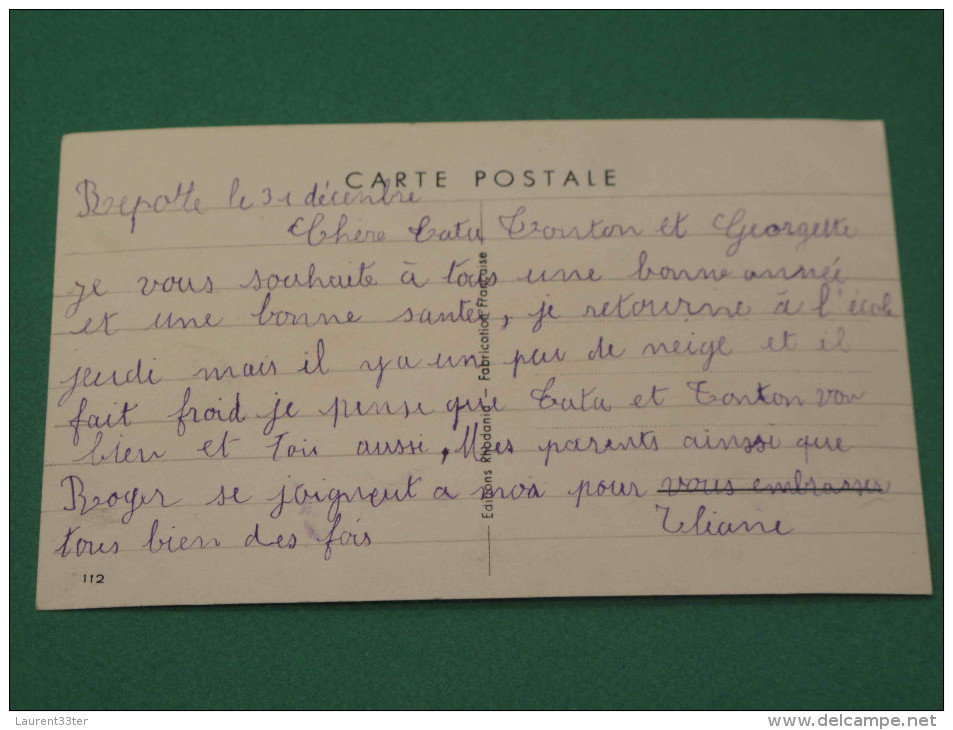 CARTE POSTALE
Repotte le 31 décembre
Chère Tata Tonton et Georgette
je vous souhaite à tous une bonne année
et une bonne santée, je retourne à l'école
jeudi mais il y a un peu de neige et il
fait froid je pense que Tata et Tonton von
bien et toi aussi, Mes parents ainssi que
Roger se joignent a moi pour vous embrasser
tous bien des fois
Eliane
Editions Rhodania - Fabrication Française
112
Laurent33ter
www.delcampe.net